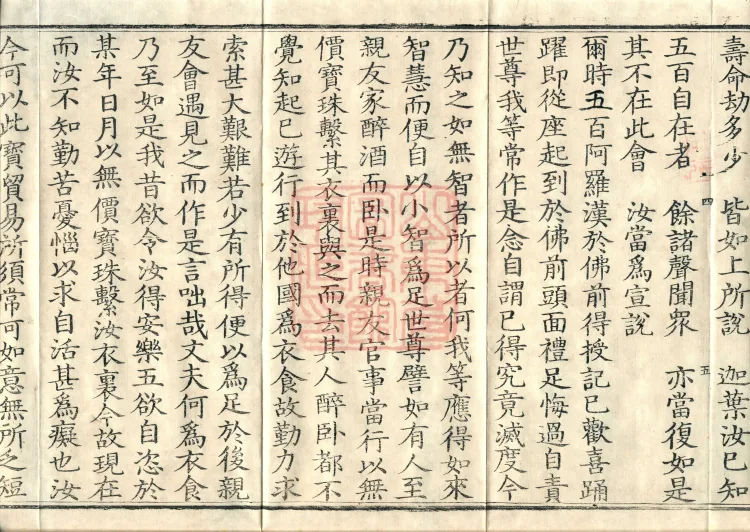 壽命劫多少 皆如上所說 迦葉汝已知
四 五
五百自在者 餘諸聲聞眾 亦當復如是
其不在此會 汝當爲宣說
爾時五百阿羅漢於佛前得授記已歡喜踊
躍即從座起到於佛前頭面禮足悔過自責
世尊我等常作是念自謂已得究竟滅度今
乃知之如無智者所以者何我等應得如來
智慧而便自以小智爲足世尊譬如有人至
親友家醉酒而卧是時親友官事當行以無
價寶珠繫其衣裏與之而去其人醉卧都不
覺知起已遊行到於他國爲衣食故勤力求
索甚大艱難若少有所得便以爲足於後親
友會遇見之而作是言咄哉丈夫何爲衣食
乃至如是我昔欲令汝得安樂五欲自恣於
某年日月以無價寶珠繫汝衣裏今故現在
而汝不知勤苦憂惱以求自活甚爲癡也汝
今可以此寶貿易所須常可如意無所乏短